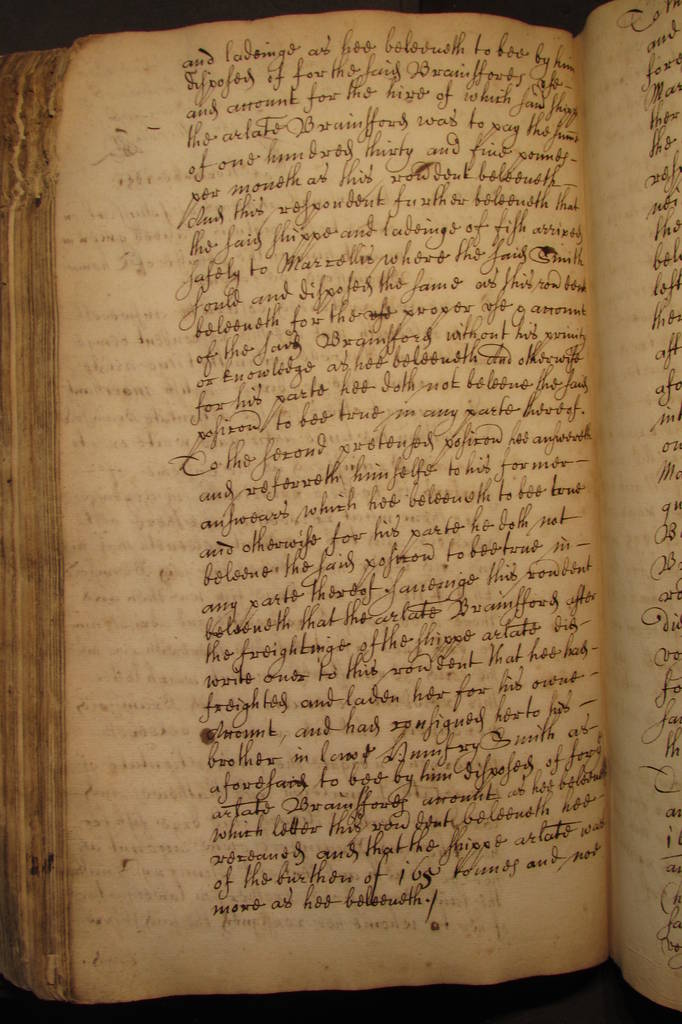 and ladeinge as hee beleeveth to bee by him
disposed of for the said Brainffords use
and account for the hire of which said shipp
the arlate Brainfford was to pay the summe
of one hundred thirty and five pounds
per moneth as this rondent beleeveth
And this respondent further beleeveth that
the said shippe and ladeinge of fish arrived
safely to Marcellis where the said Smith
sould and disposed the same as this rondent
beleeveth for the use proper use & account
of the said Brainfford without his privity
or knowledge as hee beleeveth And otherwise
for his parte hee doth not beleeve the said
posicon to bee true in any parte thereof.
To the second pretensed posicon hee answereth
and referreth himselfe to his former
answears which hee beleeveth to bee true
and otherwise for his parte he doth not
beleeve the said posicon to bee true in
any parte thereof saveinge this rondent
beleeveth that the arlate Brainfford after
the freightinge of the shippe arlate did
write over to this rondent that hee had
freighted and laden her for his owne
account, and had consigned her to his
brother in lawe Humfry Smith as
aforesaid to bee by him disposed of for
arlate Brainffords account as hee beleeveth
which letter this rondent beleeveth hee
receaved and that the shippe arlate was
of the burthen of 165 tonnes and noe
more as hee beleeveth./
To
and
fore
Mar
ther
the
resp
nei
the
bel
left
ther
aft
afo
int
ow
Mo
qu
B
B
ro
did
vo
fo
sa
th
an